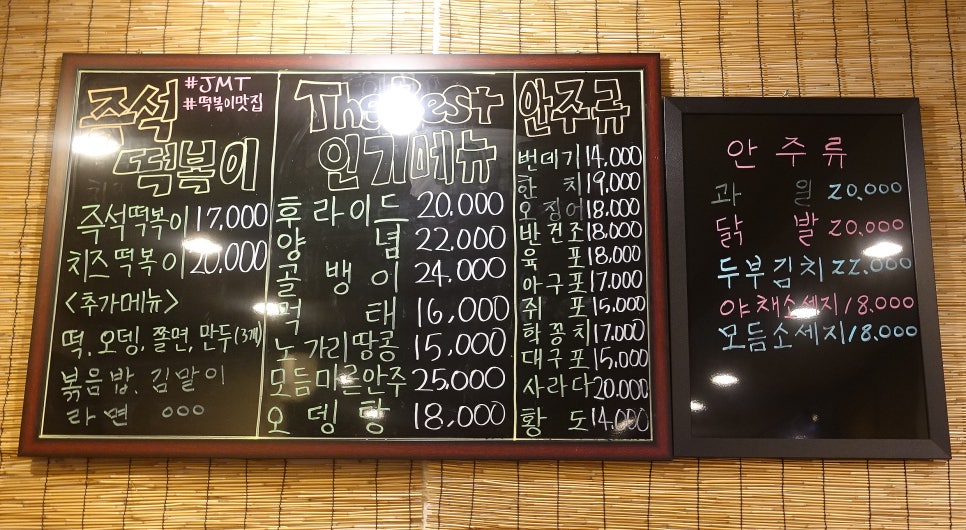 #JMT
#떡볶이맛집
즉석
떡볶이
즉석떡볶이 17,000
치즈떡볶이 20,000
<추가메뉴>
떡, 오뎅, 쫄면, 만두(3개)
볶음밥, 김말이
라면 ooo
The Best
인기메뉴
후라이드 20,000
양념 22,000
골뱅이 24,000
먹태 16,000
노가리땅콩 15,000
모듬마른안주 25,000
오뎅탕 18,000
안주류
번데기 14,000
한치 19,000
오징어 18,000
반건조 18,000
육포 18,000
아구포 17,000
쥐포 15,000
학꽁치 17,000
대구포 15,000
사라다 20,000
황도 14,000
안주류
과일 20,000
닭발 20,000
두부김치 22,000
야채소세지 18,000
모듬소세지 18,000